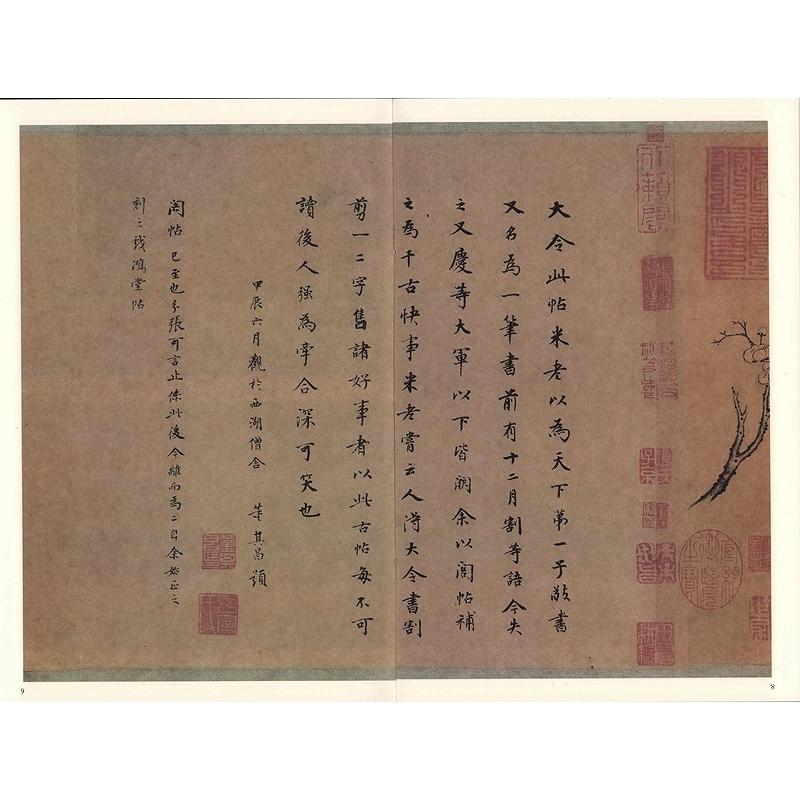 大令此帖米老以為天下第一子敬書
又名為一筆書前有十二月割等語今失
之又慶等大軍以下皆闕余以閣帖補
之為千古快事米老嘗云人得大令書割
剪一二字售諸好事者以此古帖每不可
讀後人强為牽合深可笑也
甲辰六月觀於西湖僧舍 董其昌題
閣帖已至也分張可言止係此後今離而為二自余始正之
刻之戏鴻堂帖
8
9